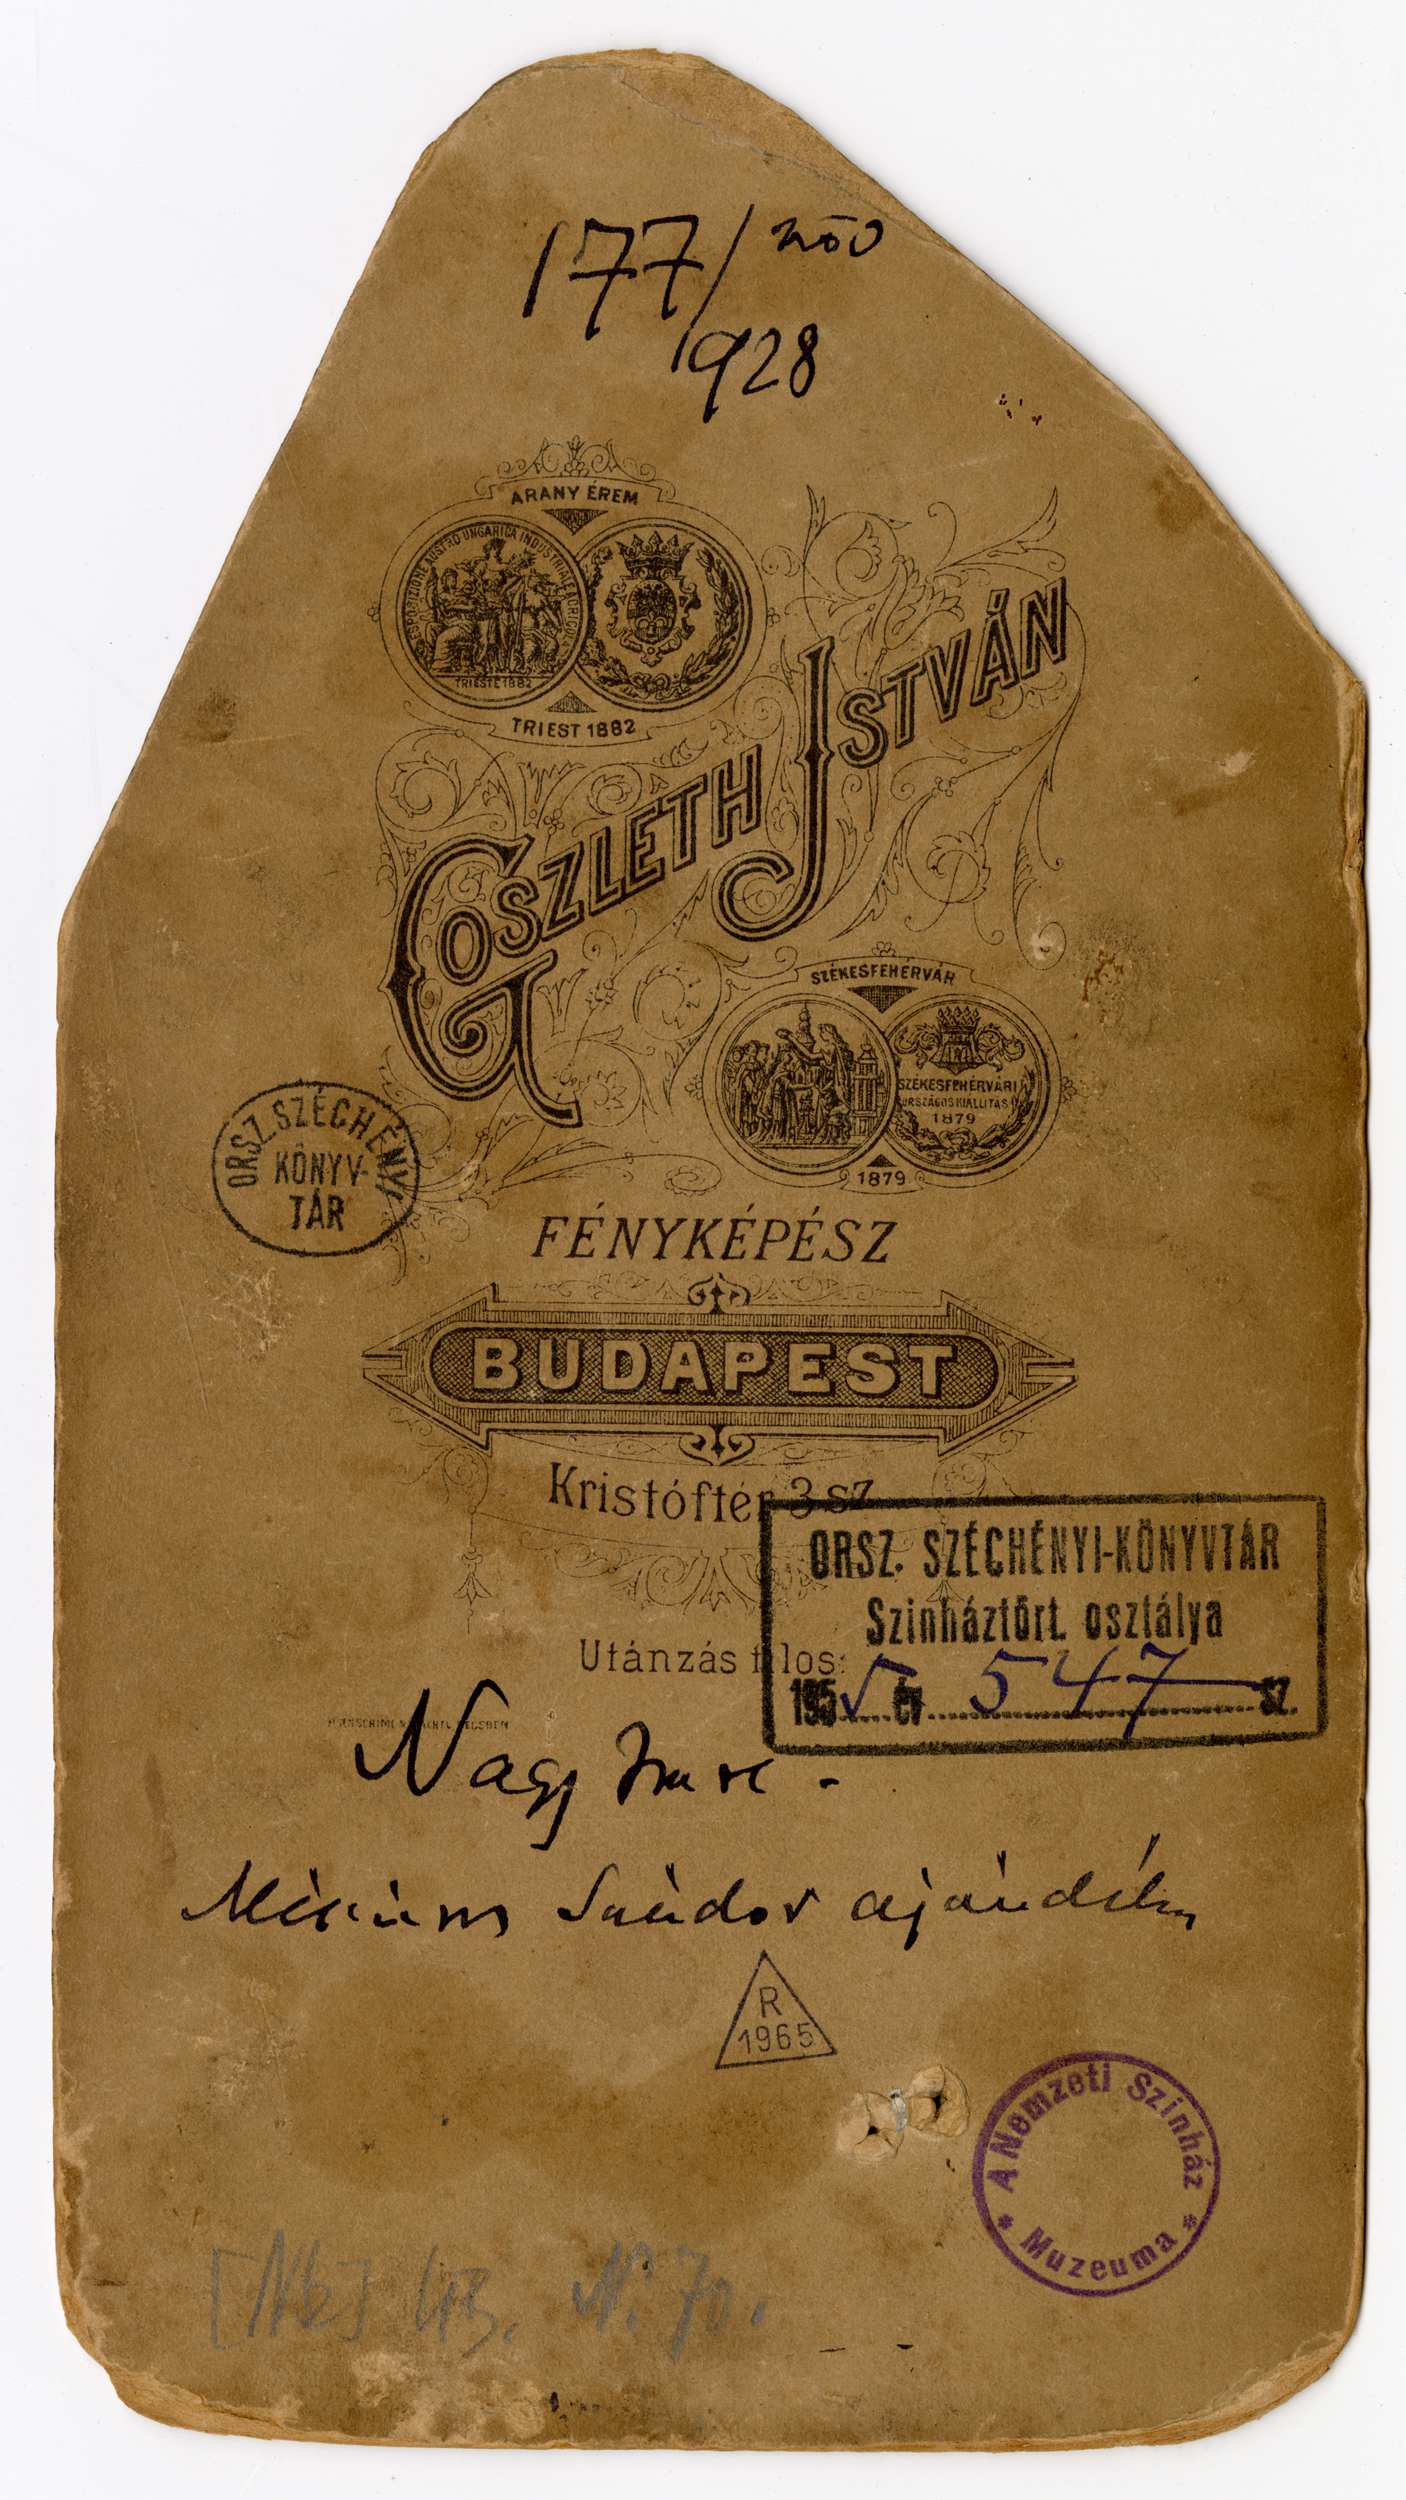 177/növ
1928
ARANY ÉREM
ESPOSIZIONE AUSTRO UNGARICA INDUSTRIALE AGRICOLA
TRIESTE 1882
TRIEST 1882
GOSZLETH ISTVÁN
SZÉKESFEHÉRVÁR
SZÉKESFEHÉRVÁRI
ORSZÁGOS KIÁLLITÁS
1879
1879
ORSZ. SZÉCHÉNYI
KÖNYV-
TÁR
FÉNYKÉPÉSZ
BUDAPEST
Kristóftér 3 sz
ORSZ. SZÉCHÉNYI-KÖNYVTÁR
Szinháztört. osztálya
1955 év 547 sz.
Utánzás tilos.
Nagy Imre -
Sándor ajándéka
R
1965
A Nemzeti Szinház
* Muzeuma *
N. 70.